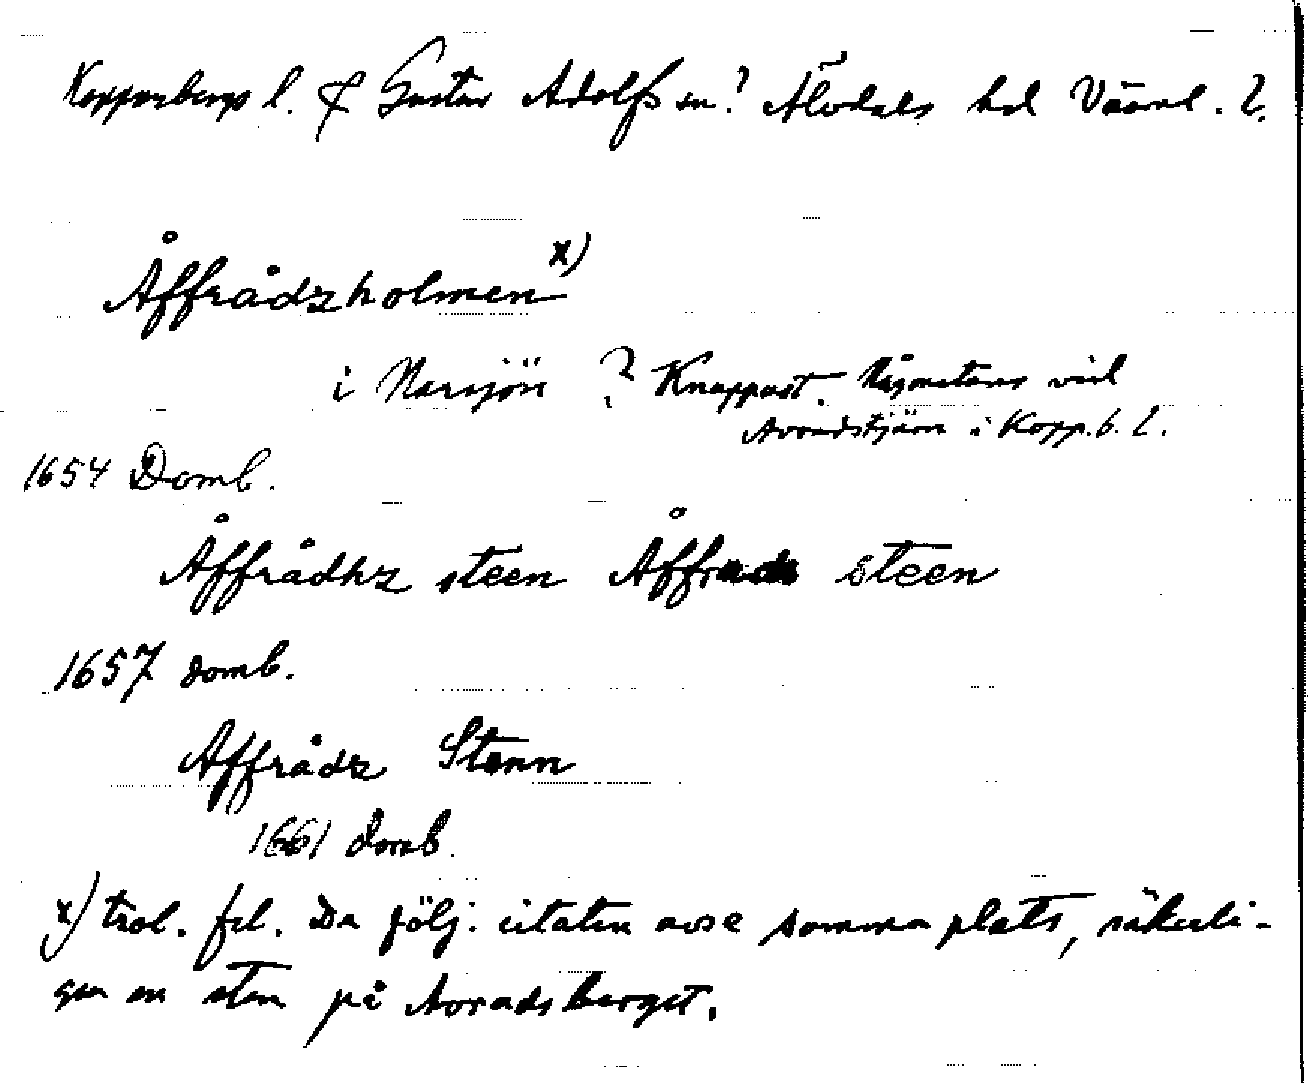 Kopparbergs l. & Gustav Adolfs sn? Älvdals hd Värml. l.
Åffrådzholmen x)
i Narsjön ? Knappast. Någonstans vid
Avradstjärn i Kopp.b. l.
1654 Domb.
Åffrådhz steen Åffrads steen
1657 domb.
Affrådz Stenn
1661 domb.
x) trol. fel. De följ. citaten avse samma plats, säkerli-
gen en sten på Avradsberget.